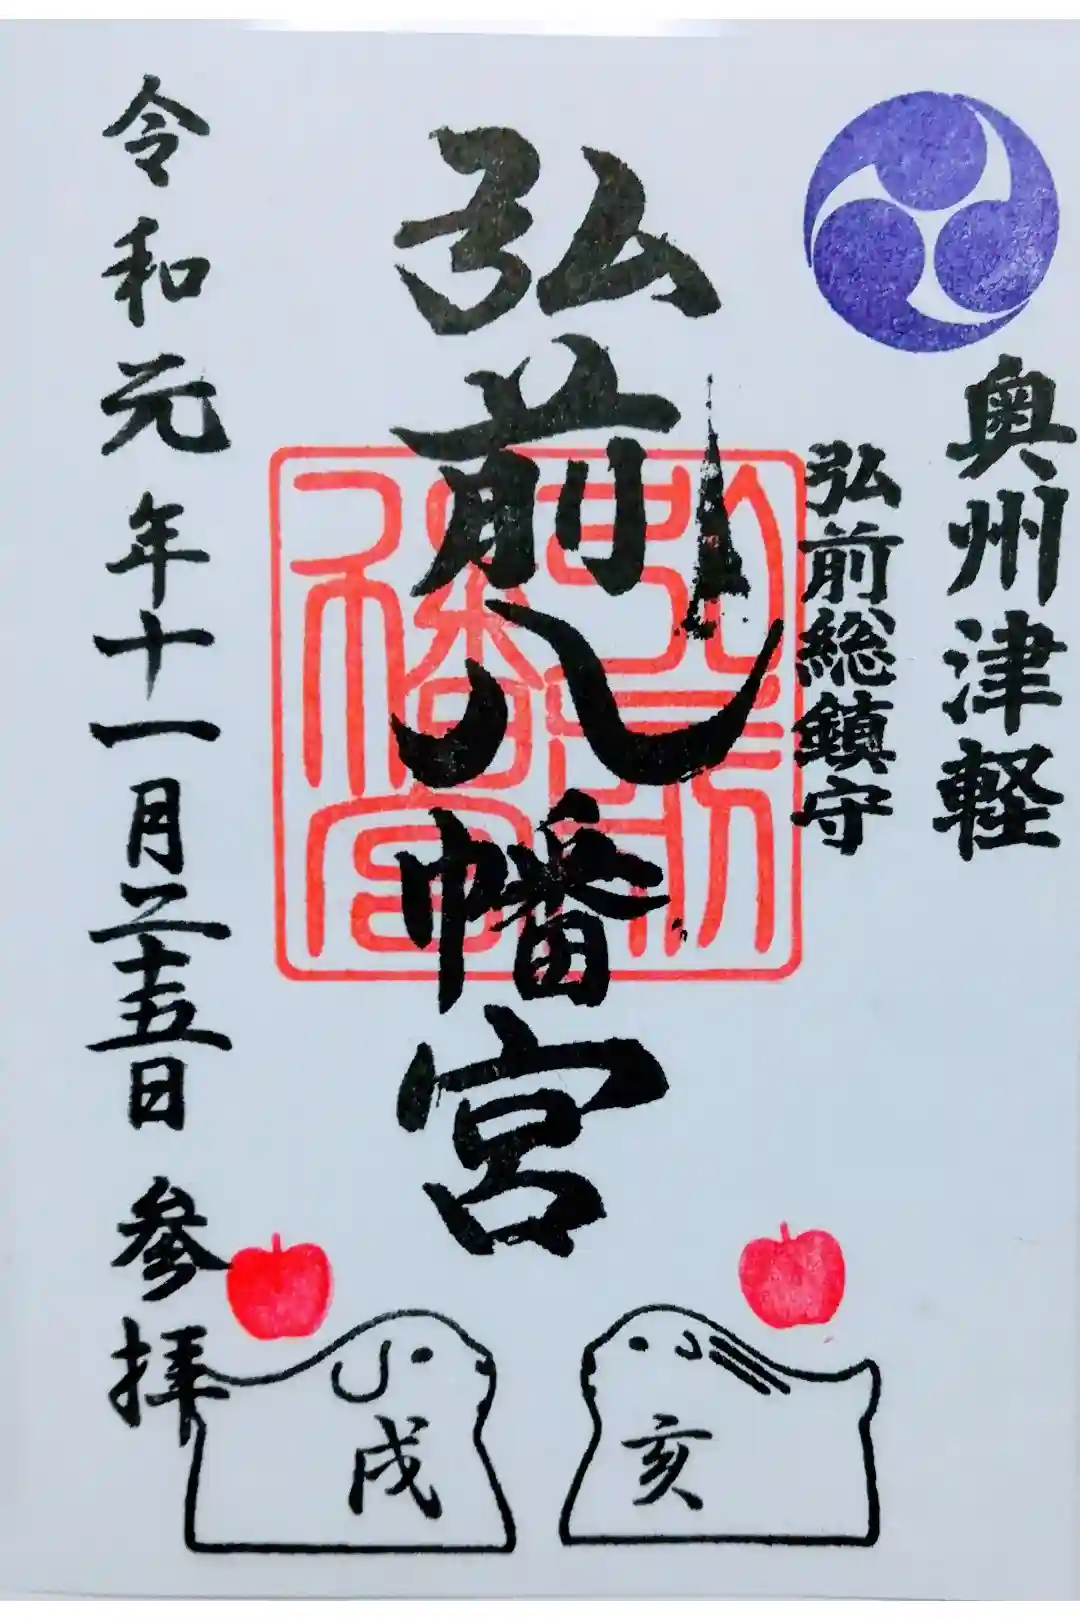 奥州津軽
弘前総鎮守
弘前八幡宮
弘前八幡宮
令和元年十一月二十五日 参拝
戌
亥